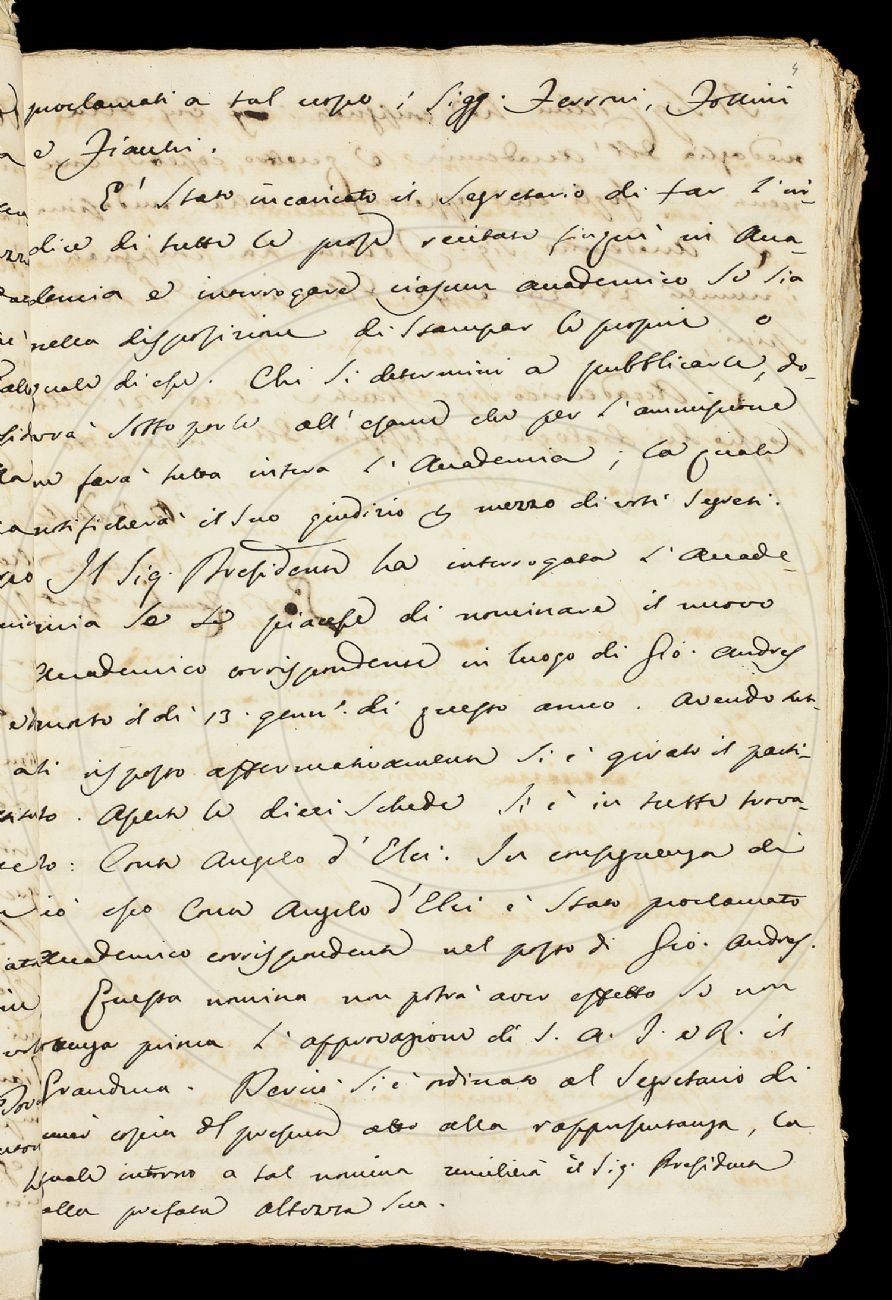 4
proclamati a tal uopo i Sigg. Ferroni, Follini
e Fiacchi.
E' stato incaricato il Segretario di far l'in-
dice di tutte le prose recitate fin qui in Acca-
demia e interrogare ciascun accademico se sia
nella disposizione di stampar le proprie o
quale di esse. Chi si determini a pubblicarle, do-
vrà sottoporle all'esame che per l'ammissione
ne farà tutta intera l'Accademia; la quale
notificherà il suo giudizio per mezzo di voti segreti.
Il Sig. Presidente ha interrogata l'Accade-
mia se le piacesse di nominare il nuovo
Accademico corrispondente in luogo di Gio. Andres
morto il dì 13. genn. di questo anno. Avendo tut-
ti risposto affermativamente si è girato il parti-
to. Aperte le dieci schede si è in tutte trova-
to: Conte Angelo d'Elci. In conseguenza di
ciò esso Conte Angelo d'Elci è stato proclamato
Accademico corrispondente nel posto di Gio. Andres.
Questa nomina non potrà aver effetto se non
venga prima l'approvazione di S. A. I. e R. il
Granduca. Perciò si è ordinato al Segretario di
unir copia del presente atto alla rappresentanza, la
quale intorno a tal nomina umilierà il Sig. Presidente
alla prefata Altezza Sua.